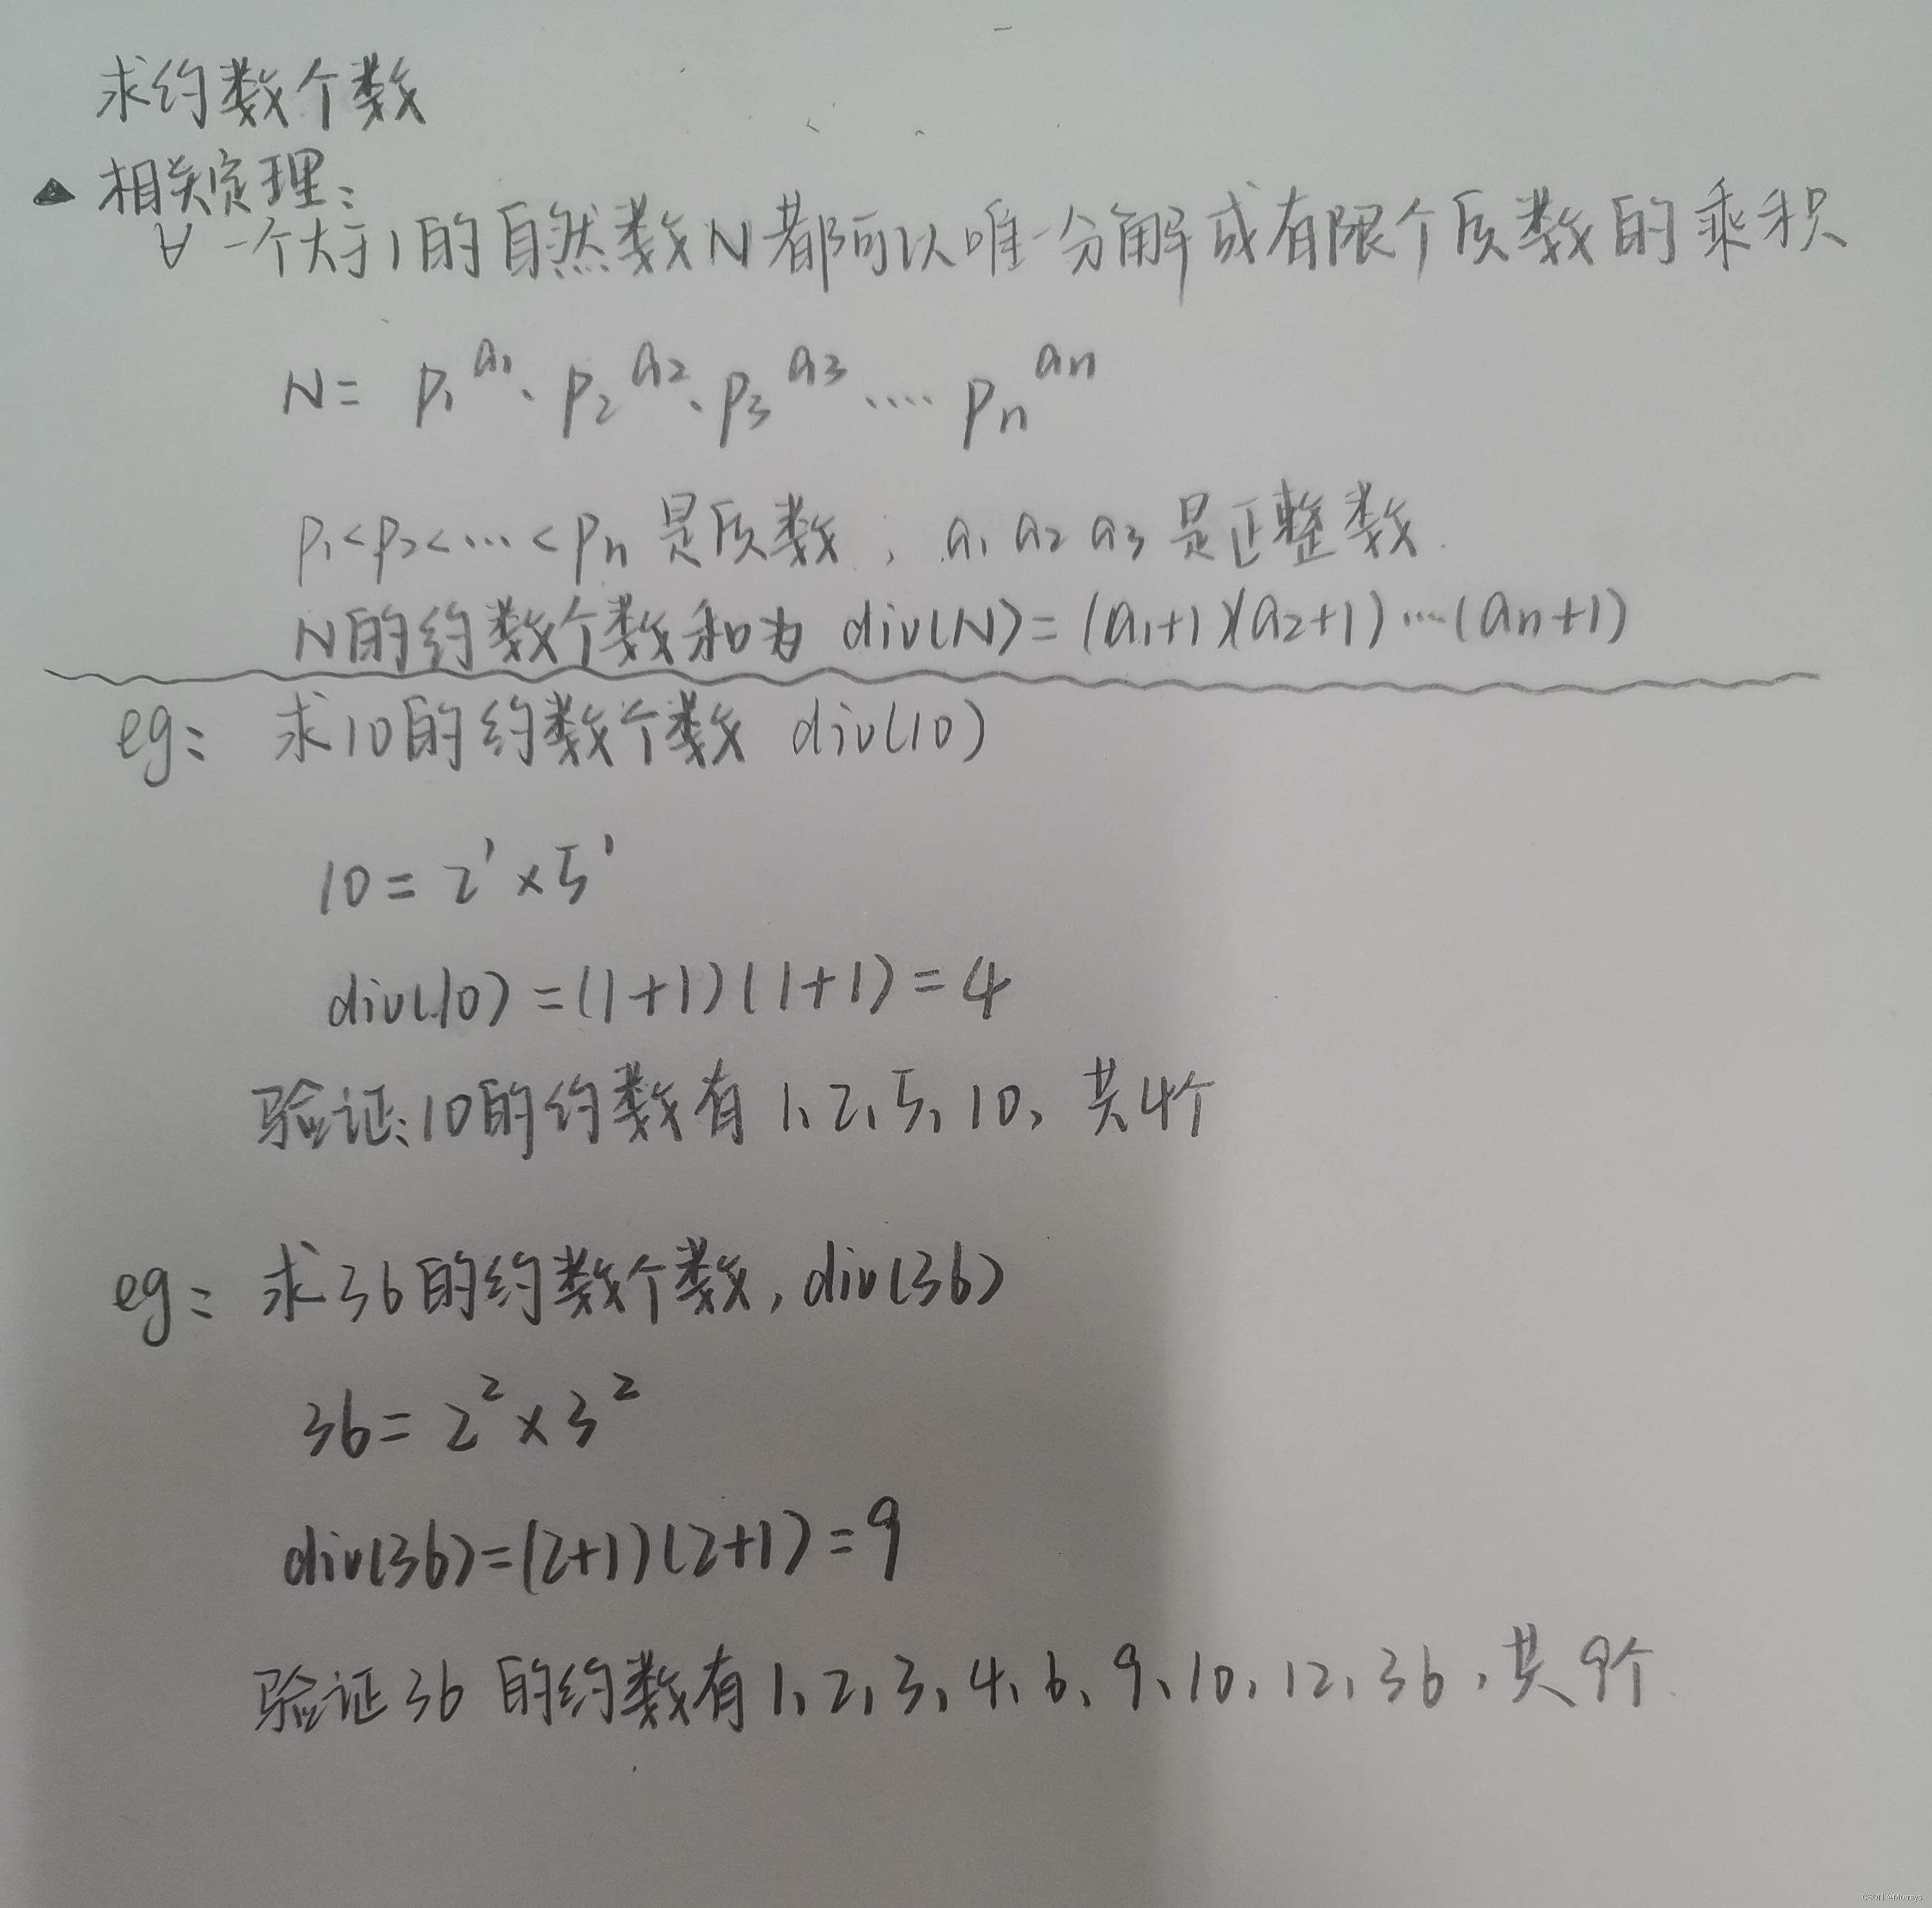 求约数个数
▲ 相关定理:
∀一个大于1的自然数N都可以唯一分解成有限个质数的乘积
N= p₁^a₁·p₂^a₂·p₃^a₃····pₙ^aₙ
p₁<p₂<…<pₙ是质数,a₁ a₂ a₃是正整数.
N的约数个数和为 div(N)=(a₁+1)(a₂+1)…(aₙ+1)
eg: 求10的约数个数 div(10)
10=2¹×5¹
div(10)=(1+1)(1+1)=4
验证:10的约数有1、2、5、10、共4个
eg: 求36的约数个数,div(36)
36=2²×3²
div(36)=(2+1)(2+1)=9
验证36的约数有1、2、3、4、6、9、10、12、36,共9个.
CSDN @Murrays